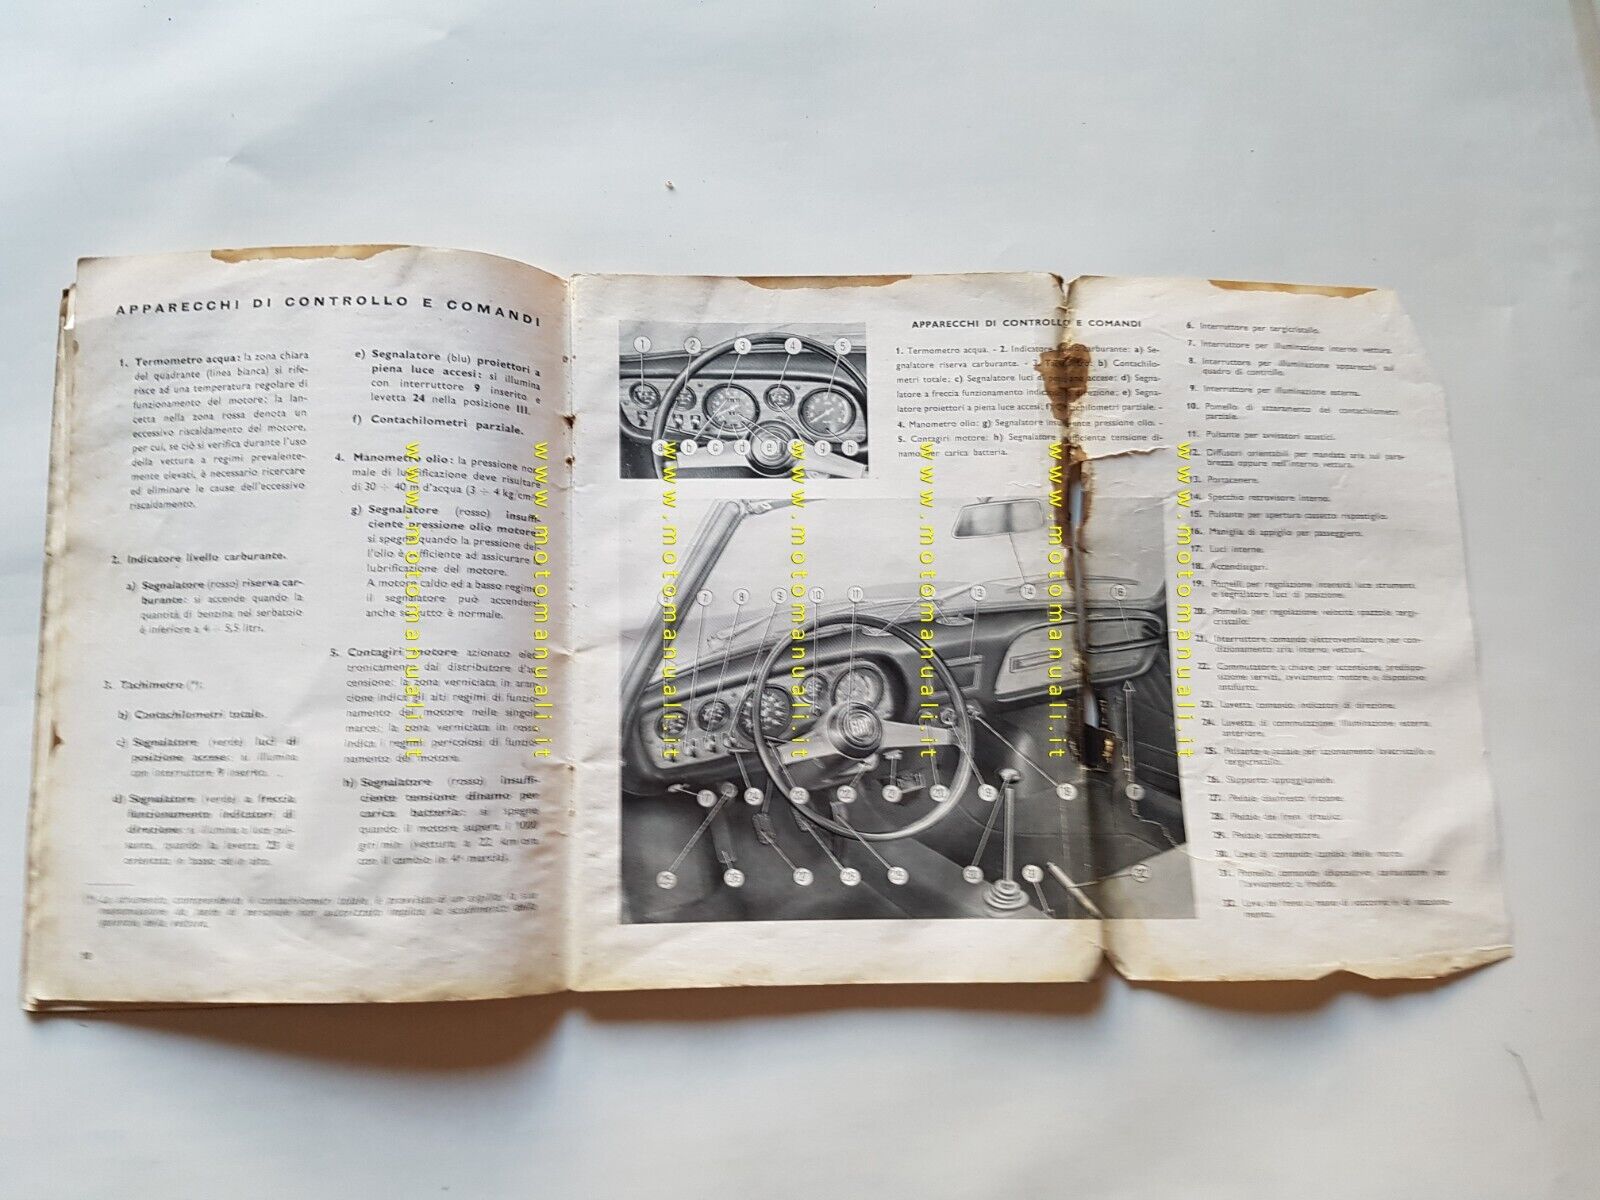 APPARECCHI DI CONTROLLO E COMANDI
1. Termometro acqua: la zona chiara
del quadrante (linea bianca) si rife-
risce ad una temperatura regolare di
funzionamento del motore: la lan-
cetta nella zona rossa denota un
eccessivo riscaldamento del motore,
per cui, se ciò si verifica durante l'uso
della vettura a regimi prevalente-
mente elevati, è necessario ricercare
ed eliminare le cause dell'eccessivo
riscaldamento.
2. Indicatore livello carburante.
a) Segnalatore (rosso) riserva car-
burante: si accende quando la
quantità di benzina nel serbatoio
è inferiore a 4 ÷ 5,5 litri.
3. Tachimetro (*):
b) Contachilometri totale.
c) Segnalatore (verde) luci di
posizione accese: si illumina
con interruttore 9 inserito.
d) Segnalatore (verde) a freccia
funzionamento indicatori di
direzione: si illumina a luce pul-
sante, quando la levetta 23 è
orientata in basso od in alto.
e) Segnalatore (blu) proiettori a
piena luce accesi: si illumina
con interruttore 9 inserito e
levetta 24 nella posizione III.
f) Contachilometri parziale.
4. Manometro olio: la pressione nor-
male di lubrificazione deve risultare
di 30 ÷ 40 m d'acqua (3 ÷ 4 kg/cm²)
g) Segnalatore (rosso) insuffi-
ciente pressione olio motore:
si spegne quando la pressione del-
l'olio è sufficiente ad assicurare la
lubrificazione del motore.
A motore caldo ed a basso regime
il segnalatore può accendersi
anche se tutto è normale.
5. Contagiri motore azionato elet-
tronicamente dal distributore d'ac-
censione: la zona verniciata in aran-
cione indica gli alti regimi di funzio-
namento del motore nelle singole
marce; la zona verniciata in rosso
indica i regimi pericolosi di funzio-
namento del motore.
h) Segnalatore (rosso) insuffi-
ciente tensione dinamo per
carica batteria: si spegne
quando il motore supera i 1000
giri/min (vettura a 22 km/ora
con il cambio in 4ª marcia).
(*) Lo strumento, comprendente il contachilometri totale, è provvisto di un sigillo: la sua
manomissione da parte di personale non autorizzato implica lo scadimento della
garanzia della vettura.
APPARECCHI DI CONTROLLO E COMANDI
1. Termometro acqua. - 2. Indicatore carburante: a) Se-
gnalatore riserva carburante. - 3. b) Contachilo-
metri totale; c) Segnalatore luci di accese: d) Segna-
latore a freccia funzionamento direzione; e) Segna-
latore proiettori a piena luce accesi; f) Contachilometri parziale. -
4. Manometro olio: g) Segnalatore insufficiente pressione olio. -
5. Contagiri motore: h) Segnalatore insufficiente tensione di-
namo per carica batteria.
1 2 3 4 5
a b c d e f g h
7 8 9 6 10 11 12 13 14 16
17 24 23 22 21 20 19 18 15
25 26 27 28 29 30 31 32
FIAT
6. Interruttore per tergicristallo.
7. Interruttore per illuminazione interno vettura.
8. Interruttore per illuminazione apparecchi sul
quadro di controllo.
9. Interruttore per illuminazione esterna.
10. Pomello di azzeramento del contachilometri
parziale.
11. Pulsante per avvisatori acustici.
12. Diffusori orientabili per mandata aria sul para-
brezza oppure nell'interno vettura.
13. Portacenere.
14. Specchio retrovisore interno.
15. Pulsante per apertura cassetto ripostiglio.
16. Maniglia di appiglio per passeggero.
17. Luci interne.
18. Accendisigari.
19. Pomelli per regolazione intensità luce strumenti
e segnalatore luci di posizione.
20. Pomello per regolazione velocità spazzole tergi-
cristallo.
21. Interruttore comando elettroventilatore per con-
dizionamento aria interno vettura.
22. Commutatore a chiave per accensione, predispo-
sizione servizi, avviamento motore e dispositivo
antifurto.
23. Levetta comando indicatori di direzione.
24. Levetta di commutazione illuminazione esterna
anteriore.
25. Pulsante a pedale per azionamento lavacristallo e
tergicristallo.
26. Supporto appoggiapiede.
27. Pedale disinnesto frizione.
28. Pedale dei freni idraulici.
29. Pedale acceleratore.
30. Leva di comando cambio delle marce.
31. Pomello comando dispositivo carburatore per
l'avviamento a freddo.
32. Leva del freno a mano di soccorso e di staziona-
mento.
www.motomanuali.it
www.motomanuali.it
www.motomanuali.it
www.motomanuali.it
www.motomanuali.it
www.motomanuali.it
www.motomanuali.it